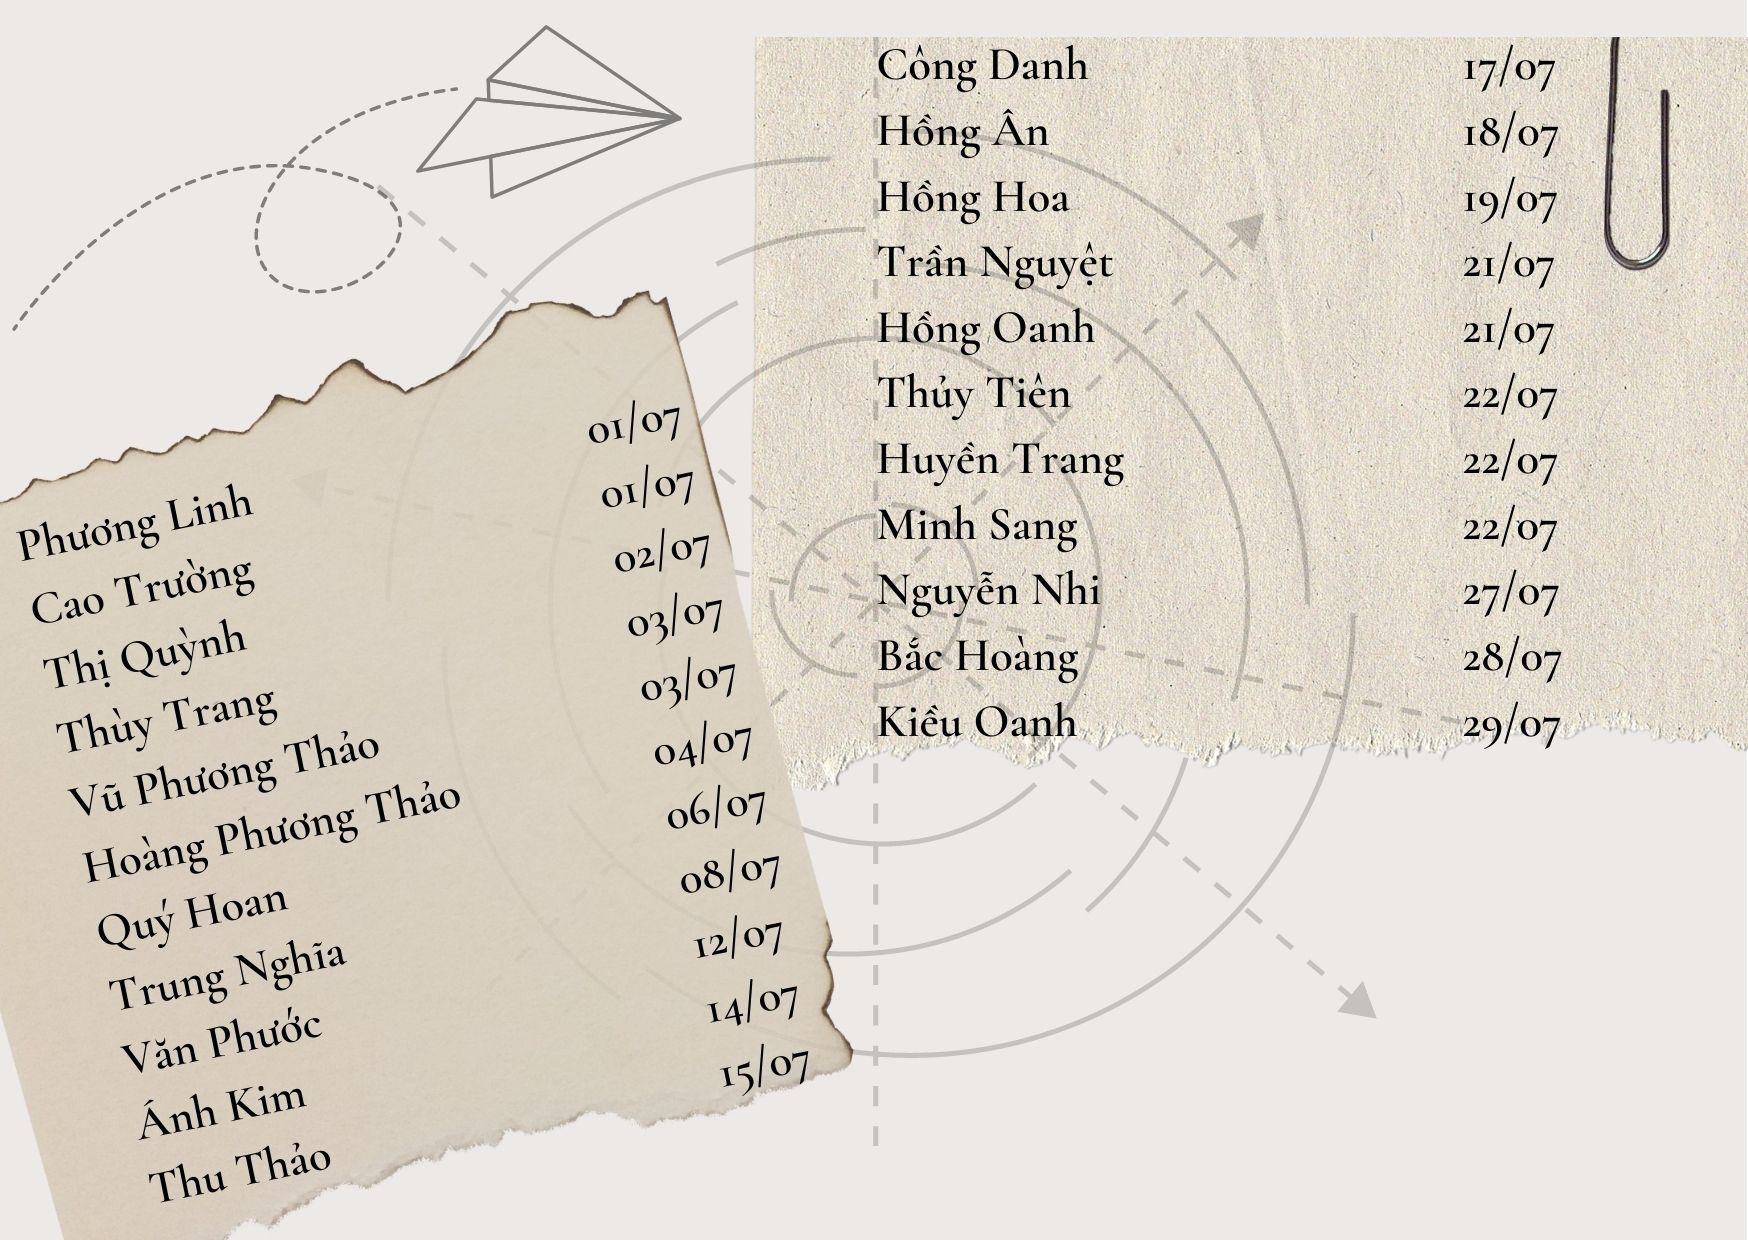 Phương Linh 01/07
Cao Trường 01/07
Thị Quỳnh 02/07
Thùy Trang 03/07
Vũ Phương Thảo 03/07
Hoàng Phương Thảo 04/07
Quý Hoan 06/07
Trung Nghĩa 08/07
Văn Phước 12/07
Ánh Kim 14/07
Thu Thảo 15/07
Công Danh 17/07
Hồng Ân 18/07
Hồng Hoa 19/07
Trần Nguyệt 21/07
Hồng Oanh 21/07
Thủy Tiên 22/07
Huyền Trang 22/07
Minh Sang 22/07
Nguyễn Nhi 27/07
Bắc Hoàng 28/07
Kiều Oanh 29/07